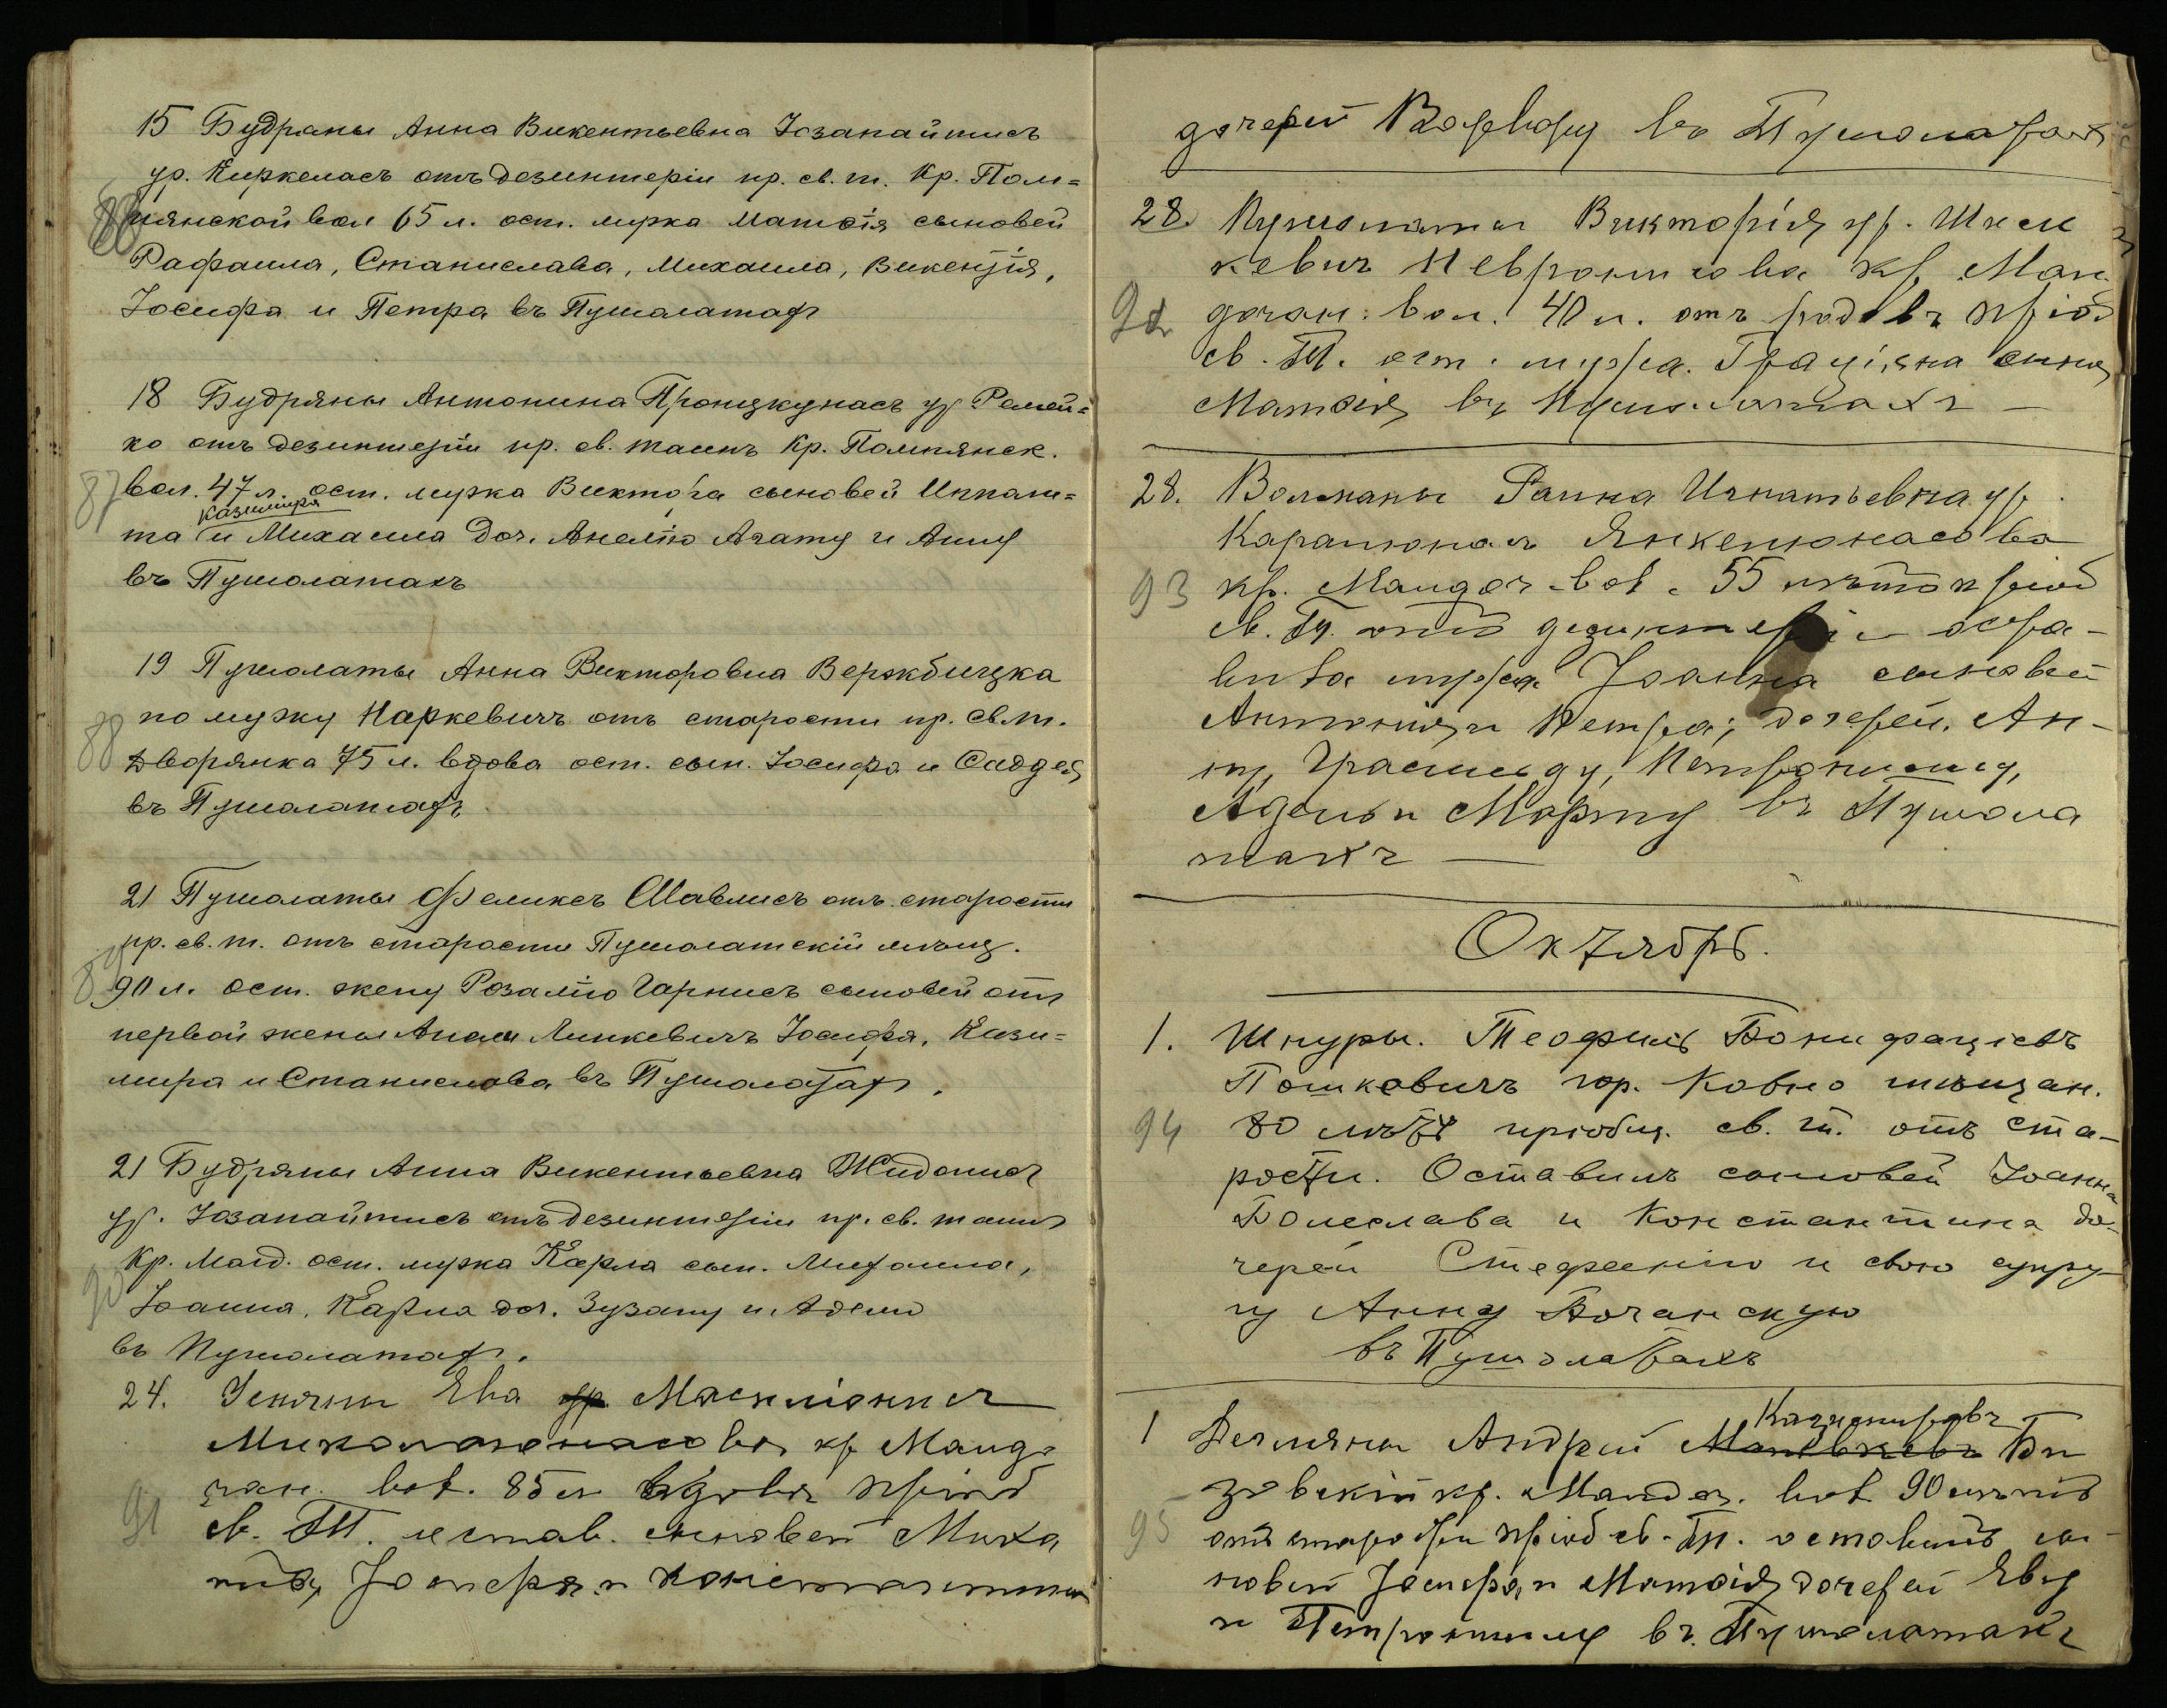 15 Будраны Анна Викентьевна Іозапайтисъ
ур. Киркеласъ отъ дезинтеріи пр. св. т. Кр. Пом=
86 пянской вол 65 л. ост. мужа Матѳія сыновей
Рафаила, Станислава, Михаила, Викентія,
Іосифа и Петра въ Пушалатах
18 Будряны Антонина Пронцкунасъ ур Ремей=
ко отъ дезинтеріи пр. св. таинъ Кр. Помпянск.
87 вол. 47 л. ост. мужа Виктора сыновей Иппали=
Казимира
та и Михаила доч. Анелію Агату и Анну
въ Пушолатахъ
19 Пушолаты Анна Викторовна Вержбицка
по мужу Наркевичъ отъ старости пр. св. т.
88 дворянка 75 л. вдова ост. сын. Іосифа и Саддея
въ Пушолатах
21 Пушолаты Феликсъ Шавлисъ отъ старости
пр. св. т. отъ старости Пушолатскій мѣщ.
89 90 л. ост. жену Розалію Чарнисъ сыновей отъ
первой жены Анели Линкевичъ Іосифа, Кази=
мира и Станислова въ Пушолатах.
21 Будряны Анна Викентьевна Жидонисъ
ур. Іозапайтисъ отъ дезинтеріи пр. св. таинъ
Кр. Маид. ост. мужа Карла сын. Михаила,
90 Іоанна, Карла доч. Зузану и Адель
въ Пушолатах.
24. Ева ур. 
кр Маидо
чан. вол. 85 л вдова пріоб
91 св. Т. остав. сыновей Миха
ила, Іосифа и Константина
дочерей Варвару въ Пушолатах
28. Пушолаты Викторія ур. Шиси
кевичъ Невронисова кр Маи
92 дочан: вол. 40 л. отъ родовъ пріоб
св. Т. ост. мужа Граціяна сына
Матѳія въ Пушолатахъ —
28. Волманы Ганна Игнатьевна ур.
Карапюнасъ Янкенюнасова
93 кр. Маидоч. вол. 55 лѣтъ пріоб
св. Т. отъ дезинтеріи оста-
вила мужа Іоанна сыновей
Антонія и Петра; дочерей. Ан-
ну, Грасильду, Петронилу,
Адель и Марту въ Пушола
тахъ —
Октябрь.
1. Шнуры. Теофиль Бонифаціевъ
Пошкевичъ гор. Ковно мѣщан.
94 80 лѣтъ пріобщ. св. т. отъ ста-
рости. Оставилъ сыновей Іоанна
Болеслава и Константина до-
черей Стефанію и свою супру-
гу Анну Бочанскую
въ Пушолатахъ
Казимировъ
1 Андрей Би
зовскій кр. Маидоч. вол 90 лѣтъ
95 отъ старости пріоб св. Т. оставилъ сы-
новей Іосифа и Матѳія дочерей Еву
и Петронилу въ Пушолатахъ